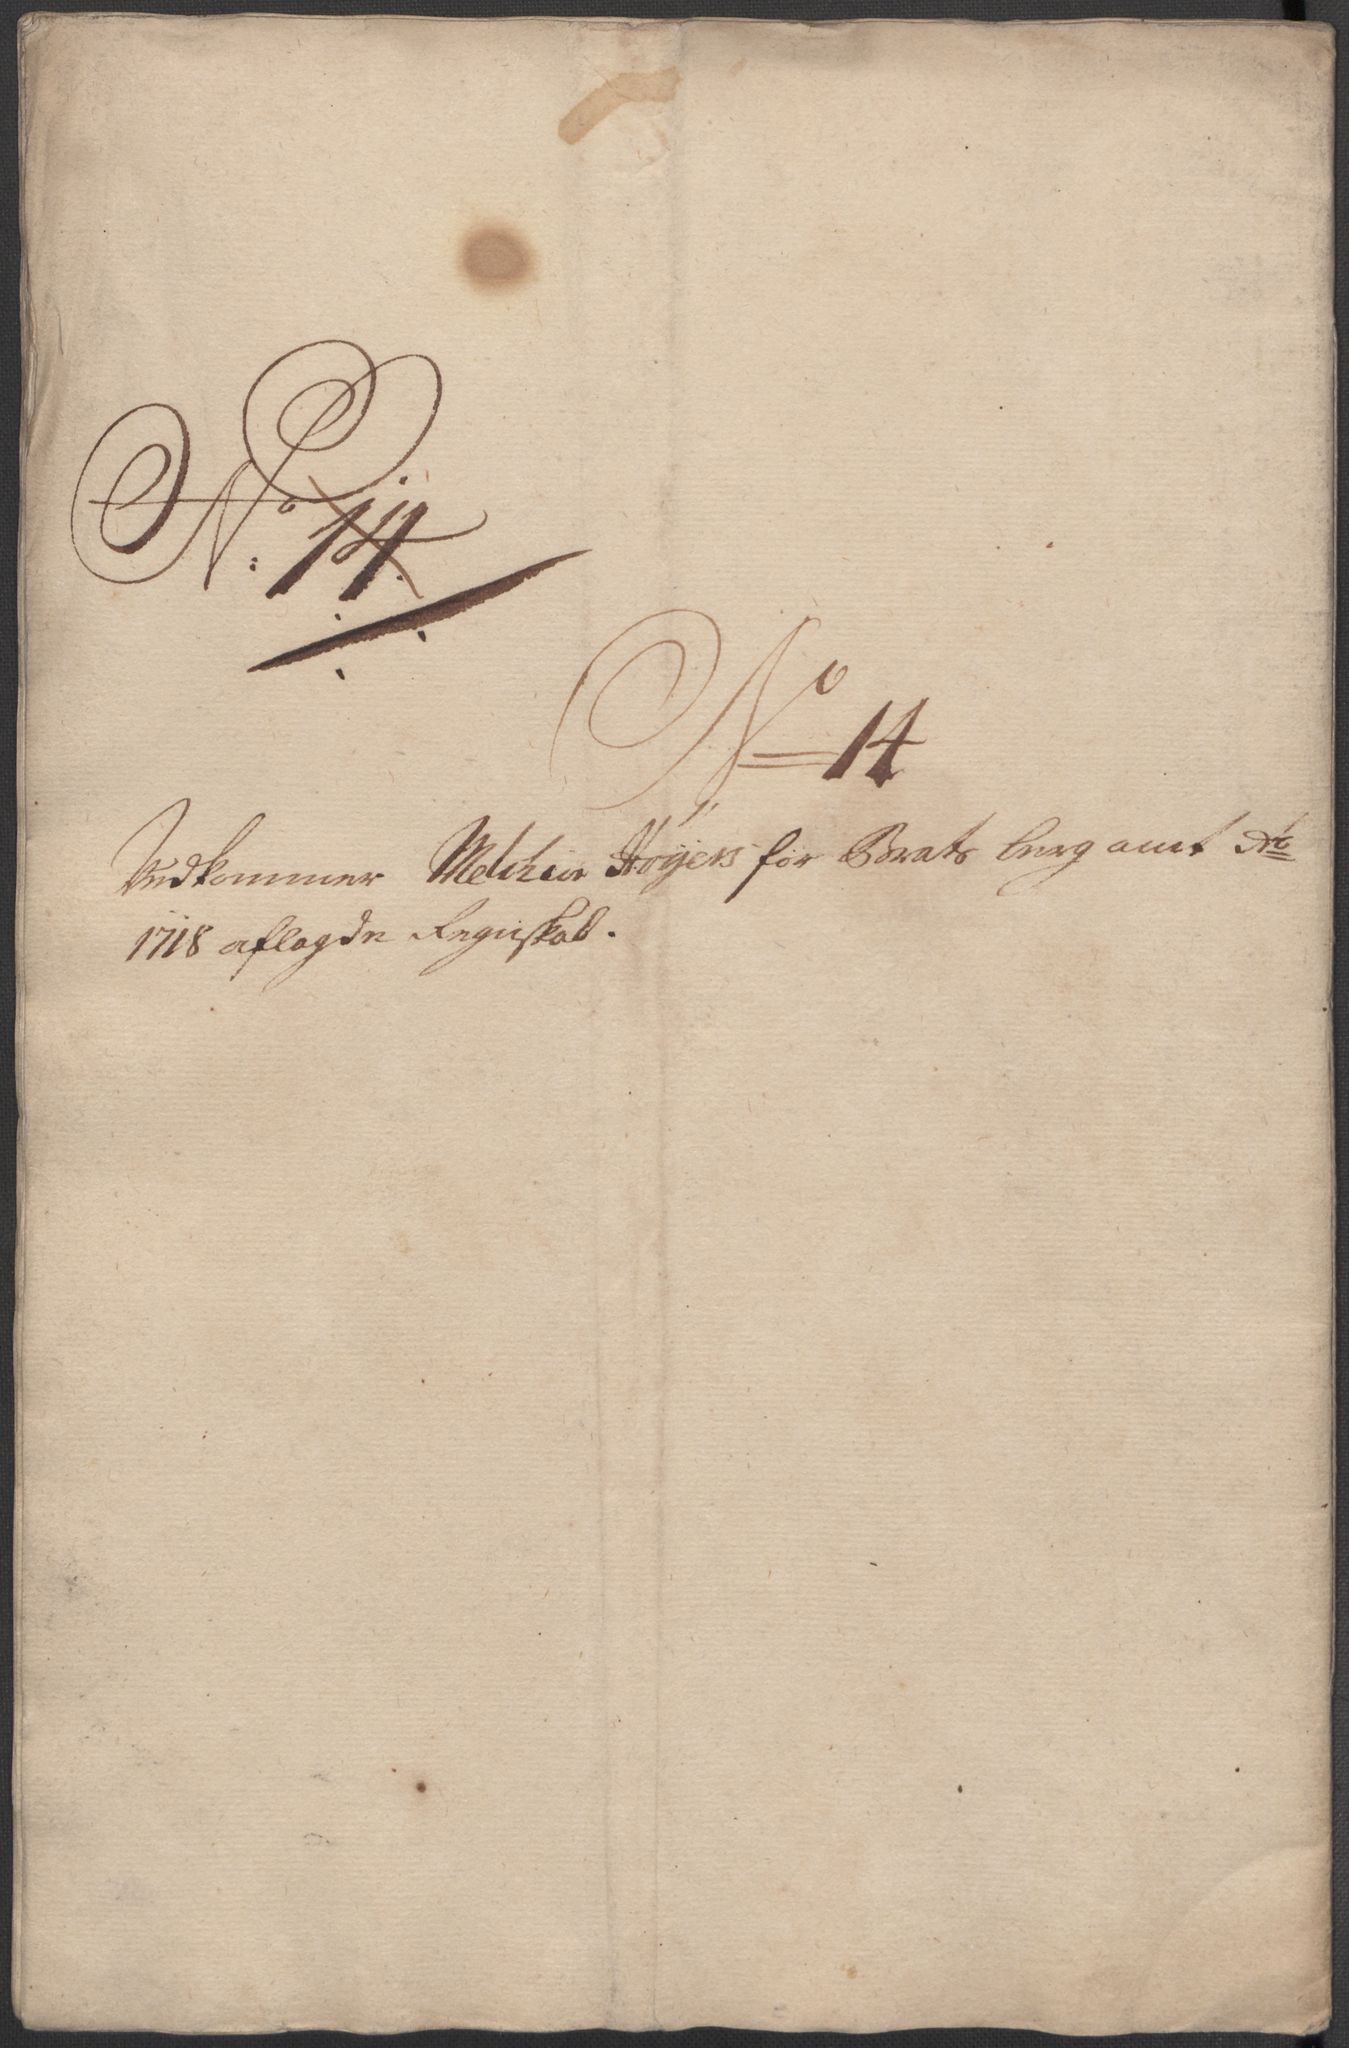 No: 14
No 14
Vedkommer Melchior Høyers for Bratsberg amt A̲o̲
1718 aflagde Regnskab.